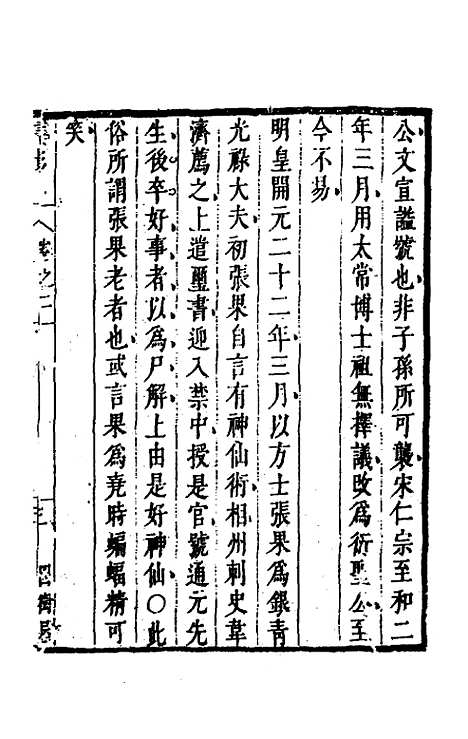 公文宣謚號也非子孫所可襲宋仁宗至和二
年三月用太常博士祖無擇議改爲衍聖公至
今不易
明皇開元二十二年三月以方士張果爲銀青
光祿大夫初張果自言有神仙術相州刺史韋
濟薦之上遣璽書迎入禁中授是官號通元先
生後卒好事者以爲尸解上由是好神仙〇此
俗所謂張果老者也或言果爲堯時蝙蝠精可
笑
卷之二